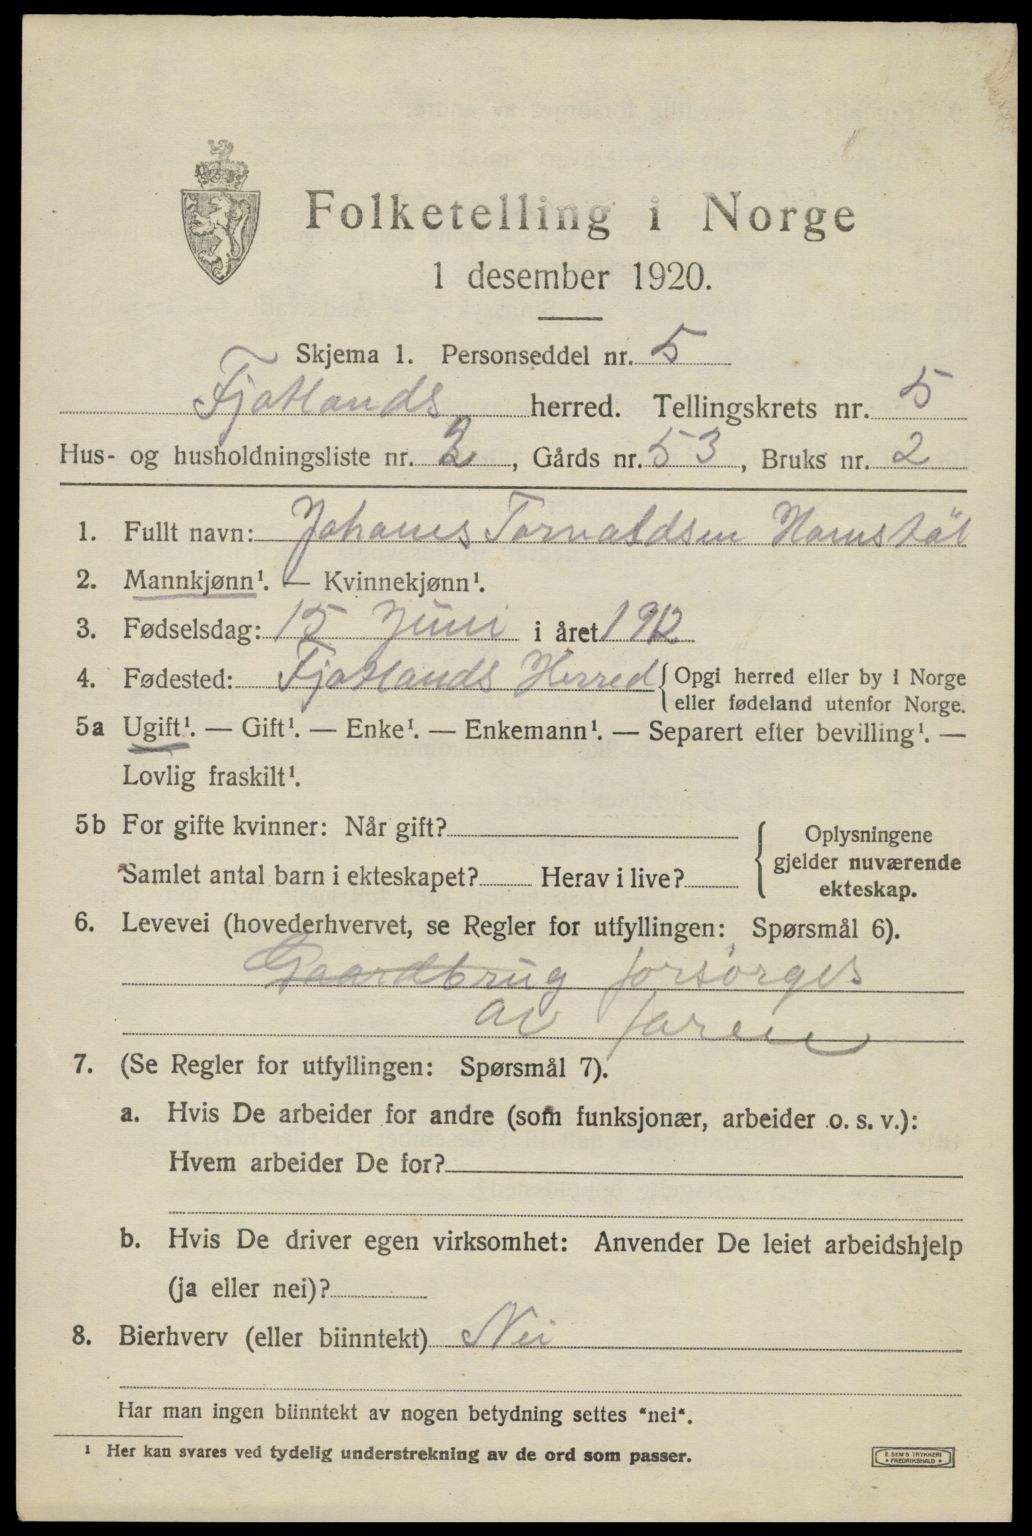 Folketelling i Norge
1 desember 1920.
Skjema 1. Personseddel nr. 5
Fjotlands herred. Tellingskrets nr. 5
Hus- og husholdningsliste nr. 2, Gårds nr. 53, Bruks nr. 2
1. Fullt navn: Johanes Torvaldsen
2. Mannkjønn¹. — Kvinnekjønn¹.
3. Fødselsdag: 15 Juni i året 1912
4. Fødested: Fjotlands Herred { Opgi herred eller by i Norge
eller fødeland utenfor Norge.
5a Ugift¹. — Gift¹. — Enke¹. — Enkemann¹. — Separert efter bevilling¹. —
Lovlig fraskilt¹.
5b For gifte kvinner: Når gift?
Samlet antal barn i ekteskapet? Herav i live?
Oplysningene
gjelder nuværende
ekteskap.
6. Levevei (hovederhvervet, se Regler for utfyllingen: Spørsmål 6).
Gaardbrug forsørges
av faren
7. (Se Regler for utfyllingen: Spørsmål 7).
a. Hvis De arbeider for andre (som funksjonær, arbeider o. s. v.):
Hvem arbeider De for?
b. Hvis De driver egen virksomhet: Anvender De leiet arbeidshjelp
(ja eller nei)?
8. Bierhverv (eller biinntekt) Nei
Har man ingen biinntekt av nogen betydning settes "nei".
¹ Her kan svares ved tydelig understrekning av de ord som passer.
E. SEM'S TRYKKERI
FREDRIKSHALD